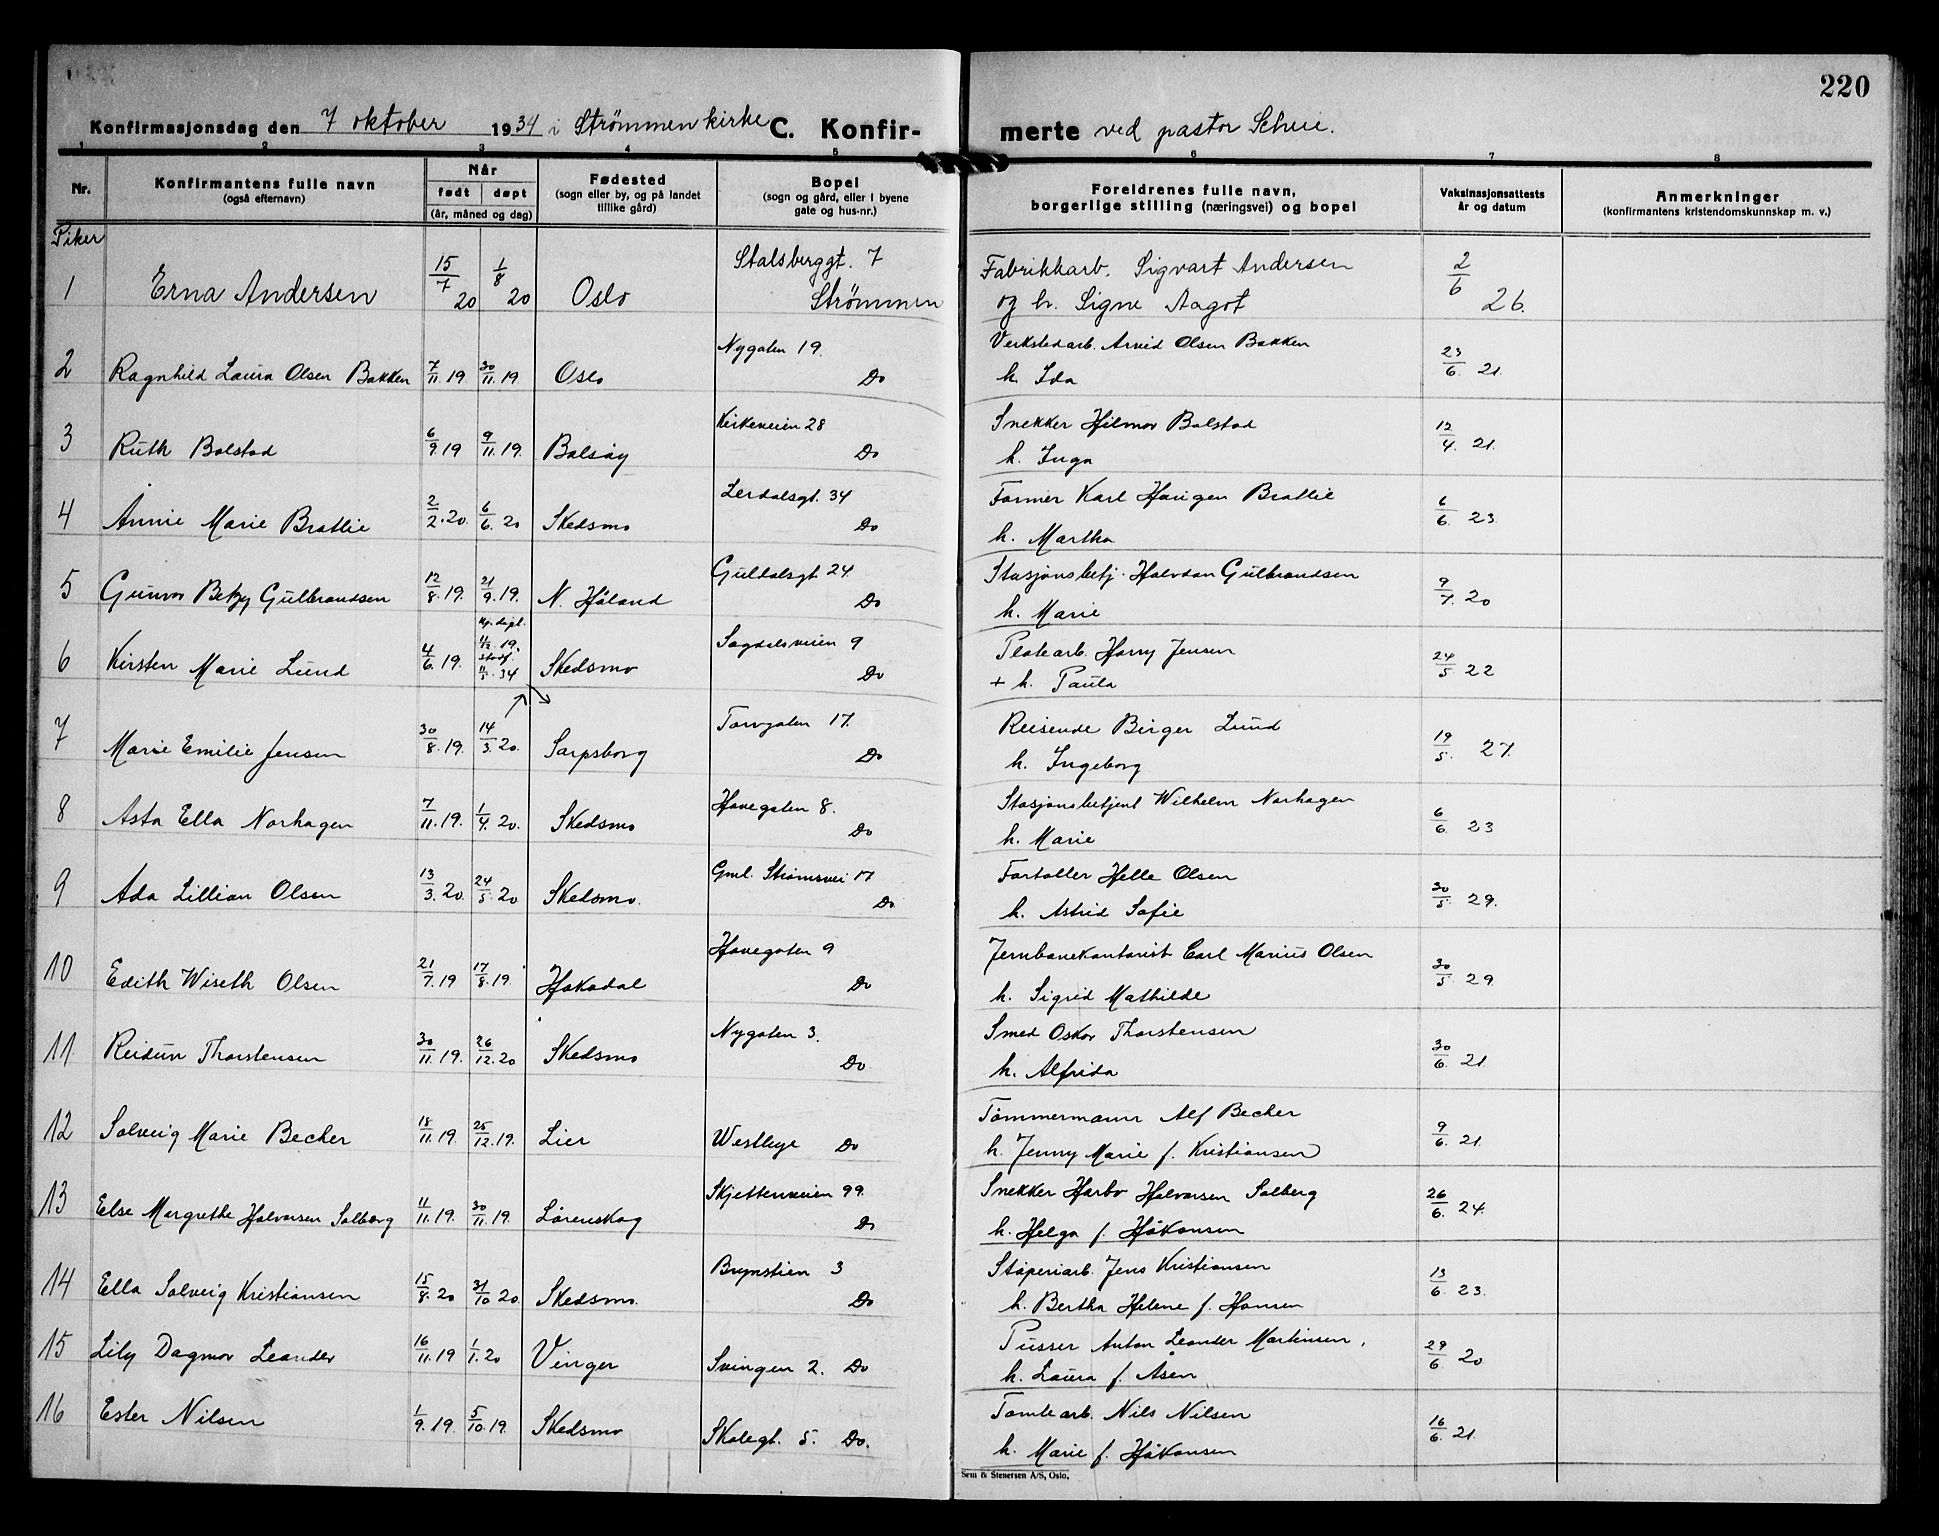 220
Konfirmasjonsdag den 7 oktober 1934 i Strømmen kirke C. Konfir-merte ved pastor Scheie.
1 2 3 4 5 6 7 8
Nr. Konfirmantens fulle navn (også efternavn) Når født døpt (år, måned og dag) Fødested (sogn eller by, og på landet tillike gård) Bopel (sogn og gård, eller i byene gate og hus-nr.) Foreldrenes fulle navn, borgerlige stilling (næringsvei) og bopel Vaksinasjonsattests år og datum Anmerkninger (konfirmantens kristendomskunnskap m. v.)
Piker
1 Erna Andersen 15/7 20 1/8 20 Oslo Stalsberggt. 7 Strømmen Fabrikkarb. Sigvart Andersen og h. Signe Aagot 2/6 26.
2 Ragnhild Laura Olsen Bakken 7/11. 19 30/11. 19 Oslo Nygaten 19. Do Verkstedarb. Arvid Olsen Bakken h. Ida 23/6. 21.
3 Ruth Bolstad 6/9. 19 9/11. 19. Bolsøy Kirkeveien 28 Do Snekker Hilmar Bolstad h. Inga 12/4. 21.
4 Annie Marie Brattlie 2/2. 20. 6/6. 20 Skedsmo Lerdalsgt. 34 Do Former Karl Haugen Brattlie h. Martha 6/6. 23.
5 Gunvor Betzy Gulbrandsen 12/8. 19. 21/9. 19. N. Høland Guldalsgt. 24 Do Stasjonsbetj. Halvdan Gulbrandsen h. Marie 9/7. 20
6 Kirsten Marie Lund 4/6. 19. Hj. døpt. 11/12. 19. stadf. 11/5. 34 Skedsmo Sagdalsveien 9 Do Platearb. Harry Jensen + h. Paula 24/5. 22
7 Marie Emilie Jensen 30/8. 19. 14/3. 20. Sarpsborg Torvgaten 17. Do Reisende Birger Lund h. Ingeborg 19/5. 27.
8 Asta Ella Norhagen 7/11. 19. 1/4. 20. Skedsmo Havegaten 8. Do Stasjonsbetjent Wilhelm Norhagen h. Marie 6/6. 23
9 Ada Lillian Olsen 13/3. 20. 24/5. 20 Skedsmo. Gml. Strømsvei 17 Do Fortoller Helle Olsen h. Astrid Sofie 30/5. 29.
10 Edith Wiseth Olsen 21/7. 19 17/8. 19. Hakadal Havegaten 9 Do Jernbanekontorist Carl Marius Olsen h. Sigrid Mathilde 30/5. 29.
11 Reidun Thorstensen 30/11. 19. 26/12. 20 Skedsmo Nygaten 3. Do. Smed Oskar Thorstensen h. Alfrida 30/6. 21.
12 Solveig Marie Becher 18/11. 19. 25/12. 19. Lier Westlye Do Tømmermann Alf Becher h. Jenny Marie f. Kristiansen 9/6. 21.
13 Else Margrethe Halvorsen Solberg 11/11. 19. 30/11. 19. Lørenskog Skjettenveien 99. Do Snekker Harbo Halvorsen Solberg h. Helga f. Håkonsen 26/6. 24.
14 Ella Solveig Kristiansen 15/8. 20 31/10. 20. Skedsmo. Brynstien 3 Do Støperiarb. Jens Kristiansen h. Bertha Helene f. Hansen 13/6. 23.
15 Lily Dagmar Leander 16/11. 19 1/1. 20 Vinger Svingen 2. Do Pusser Anton Leander Martinsen, h. Laura f. Åsen 29/6. 20
16 Ester Nilsen 1/9. 19. 5/10. 19 Skedsmo Skolegt. 5. Do. Tomtearb. Nils Nilsen h. Marie f. Håkonsen 16/6. 21.
Sem & Stenersen A/S, Oslo.